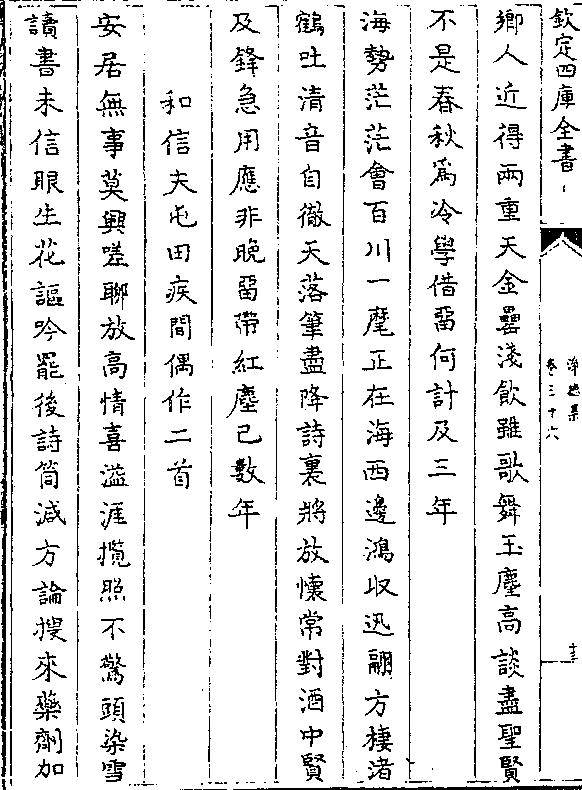 欽定四庫全書
卷三十六
鄉人近得兩重天金罍淺飲雖歌舞玉麈高談盡聖賢
不是春秋爲冷學借留何計及三年
海勢茫茫會百川一麾正在海西邊鴻收迅翮方棲渚
鶴吐清音自徹天落筆盡降詩裏將放懷常對酒中賢
及鋒急用應非晚留帶紅塵已數年
和信夫屯田疾間偶作二首
安居無事莫興嗟聊放高情喜溢涯攬照不驚頭染雪
讀書未信眼生花謳吟罷後詩筒減方論搜來藥劑加